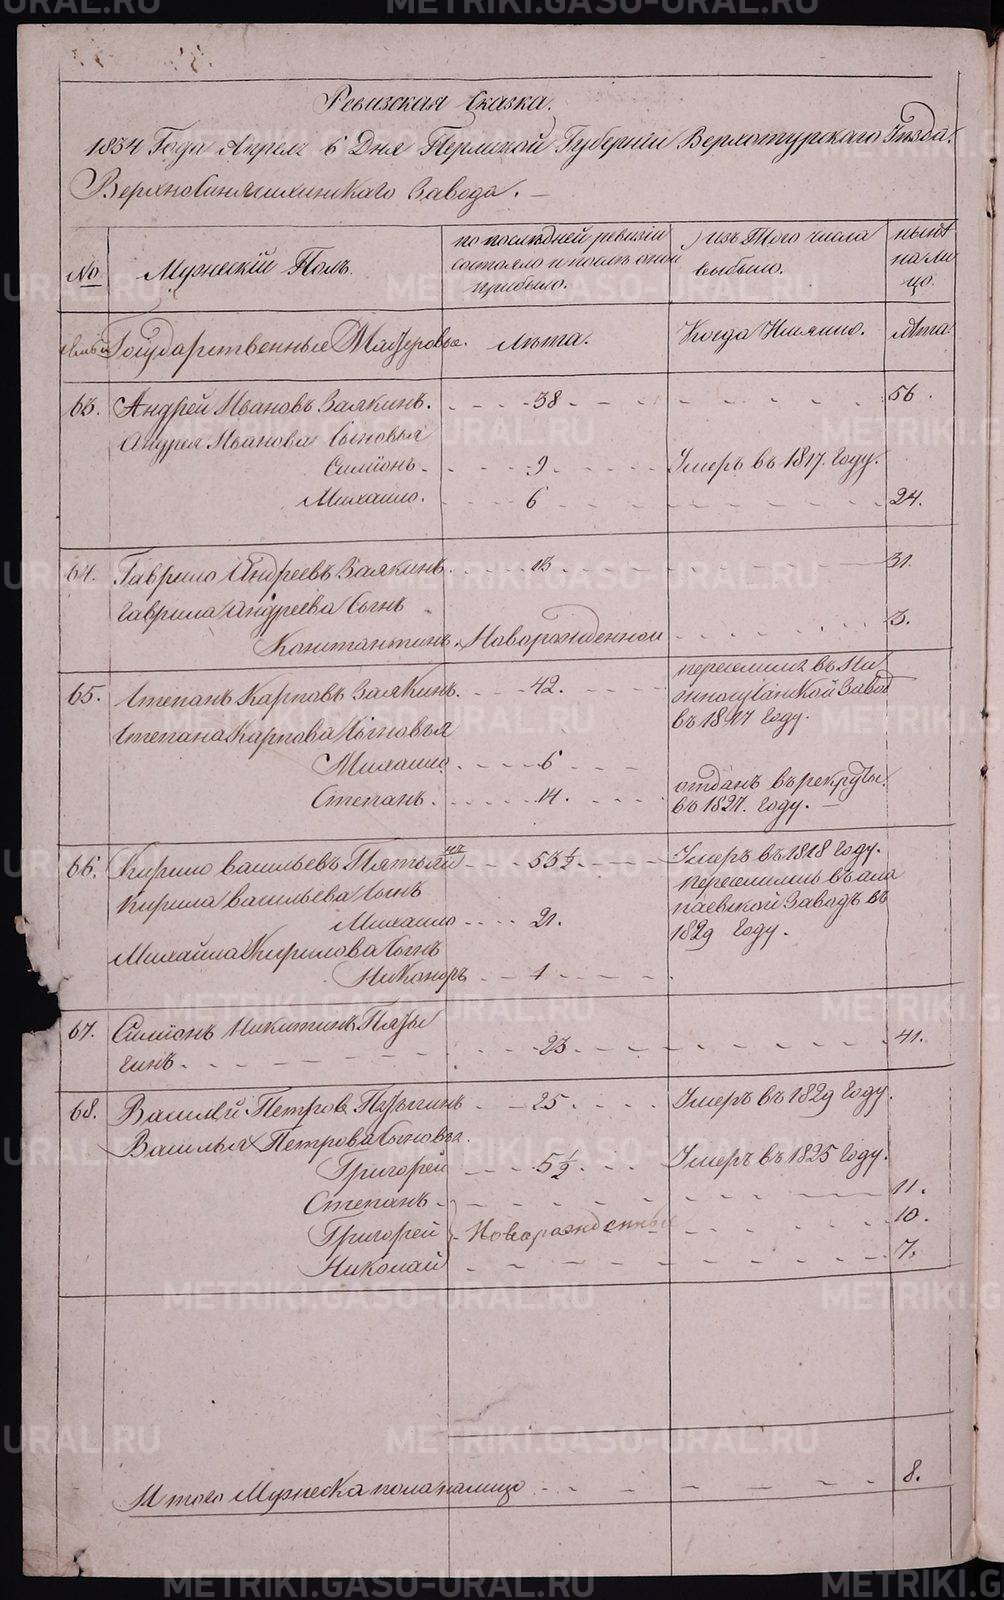 Ревизская Сказка.
1834 Года Апреля 6 Дня Пермской Губернии Верхотурского Уезда.
Верхнесинячихинского Завода. —
№ Мужескій Полъ. по последней ревизіи состояло и после оной прибыло. Изъ того числа выбыло. ныне на лицо.
Государственные Мастеровые. Лѣта. Когда Имянно. лѣта
63. Андрей Ивановъ Заякинъ. 38 56.
Андрея Иванова Сыновья
Симіонъ. 9 Умеръ въ 1817. Году.
Михаило. 6 24.
64. Гаврило Андреевъ Заякинъ. 13 31.
Гаврила Андреева Сынъ
Константинъ. Новорожденной 3.
65. Степанъ Карповъ Заякинъ. 42. переселился въ Ни
жнесусанской Завод
въ 1817 Году.
Степана Карпова Сыновья
Михаило. 6
Степанъ. 14. отданъ въ рекруты.
въ 1827. Году. —
66. Кирило васильевъ 53½ Умеръ въ 1818 Году.
Кирила васильева Сынъ переселились в ала
Михаило 21. паевской Заводъ въ
1829 Году.
Михайла Кирилова Сынъ
Никаноръ 1
67. Симіонъ Никитинъ Пузы
гинъ. 23 41.
68. Василей Петров Пузыгинъ 25 Умеръ въ 1829 Году.
Василья Петрова Сыновья.
Григорей 5½ Умеръ въ 1825 Году.
Степанъ 11.
Григорей Новорожденные 10.
Николай 7.
Итого Мужеска пола налицо 8.
METRIKI.GASO-URAL.RU